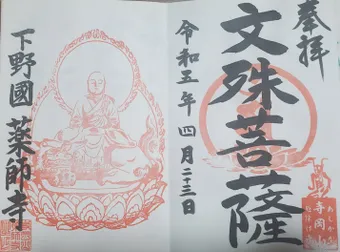 奉拝
文殊菩薩
令和五年四月二十三日
下野國 薬師寺
寺岡